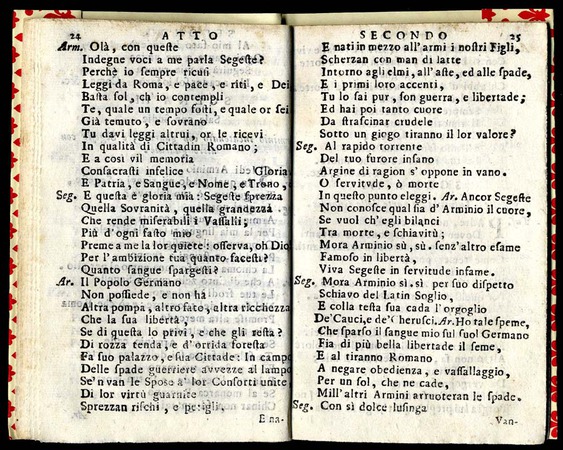 24 ATTO
Arm. Olà, con queste
Indegne voci a me parla Segeste?
Perchè io sempre ricusi
Leggi da Roma, e pace, e riti, e Dei
Basta sol, ch'io contempli
Te, quale un tempo fosti, e quale or sei
Già temuto, e sovrano
Tu davi leggi altrui, or le ricevi
In qualità di Cittadin Romano;
E a così vil memoria
Consacrasti infelice Gloria
E Patria, e Sangue, e Nome, e Trono,
Seg. E questa è gloria mia: Segeste sprezza
Quella Sovranità, quella grandezza
Che rende miserabili i Vassalli;
Più d'ogni fasto mio
Preme a me la lor quiete: osserva, oh Dio
Per l'ambizione tua quanto facesti?
Quanto sangue spargesti?
Ar. Il Popolo Germano
Non possiede, e non hà
Altra pompa, altro fato, altra ricchezza
Che la sua libertà,
Se di questa lo privi, e che gli resta?
Di rozza tenda, e d'orrida foresta
Fa suo palazzo, e sia Cittade: In campo
Delle spade guerriere avvezze al lampo
Se'n van le Spose a' lor Consorti unite
Di lor virtù guarnite
Sprezzan rischi, e perigli.
E na-
SECONDO 25
E nati in mezzo all'armi i nostri Figli,
Scherzan con man di latte
Intorno agli elmi, all'aste, ed alle spade,
E i primi loro accenti,
Tu lo sai pur, son guerra, e libertade;
Ed hai poi tanto cuore
Da strascinar crudele
Sotto un giogo tiranno il lor valore?
Seg. Al rapido torrente
Del tuo furore insano
Argine di ragion s'oppone in vano.
O servitude, ò morte
In questo punto eleggi. Ar. Ancor Segeste
Non conosce qual sia d'Arminio il cuore,
Se vuol ch'egli bilanci
Tra morte, e schiavitù;
Mora Arminio sù, sù. senz'altro esame
Famoso in libertà,
Viva Segeste in servitude infame.
Seg. Mora Arminio sì. sì. per suo dispetto
Schiavo del Latin Soglio,
E colla testa sua cada l'orgoglio
De' Cauci, e de' Cherusci. Ar. Ho tale speme,
Che sparso il sangue mio sul suol Germano
Fia di più bella libertade il seme,
E al tiranno Romano
A negare obedienza, e vassallaggio,
Per un sol, che ne cade,
Mill'altri Armini arruoteran le spade.
Seg. Con sì dolce lusinga
Van-